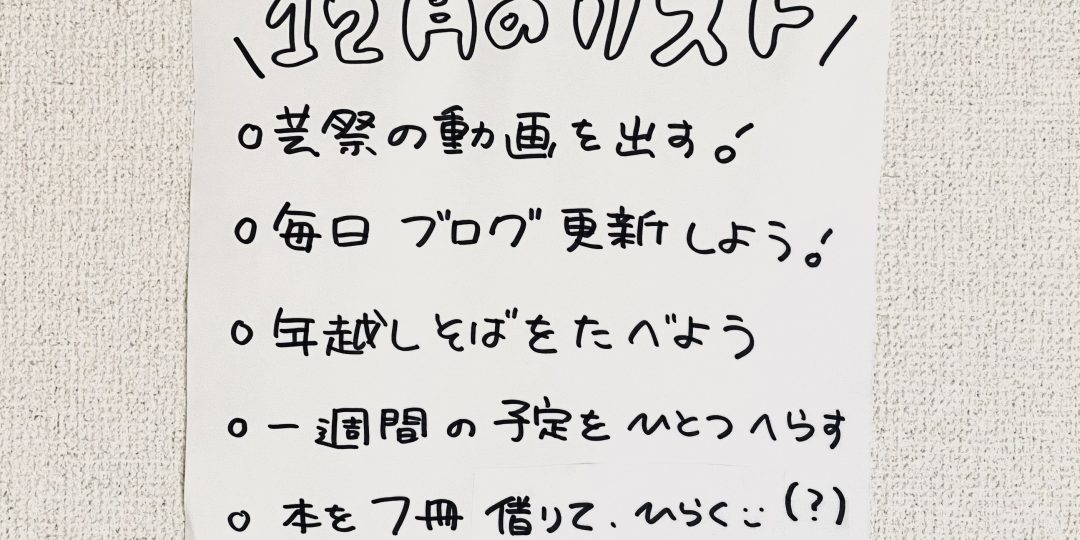 \12月のリスト/
○芸祭の動画を出す!
○毎日 ブログ更新しよう!
○年越しそばをたべよう
○一週間の予定をひとつへらす
○本を7冊 借りて、ひらく:)(?)